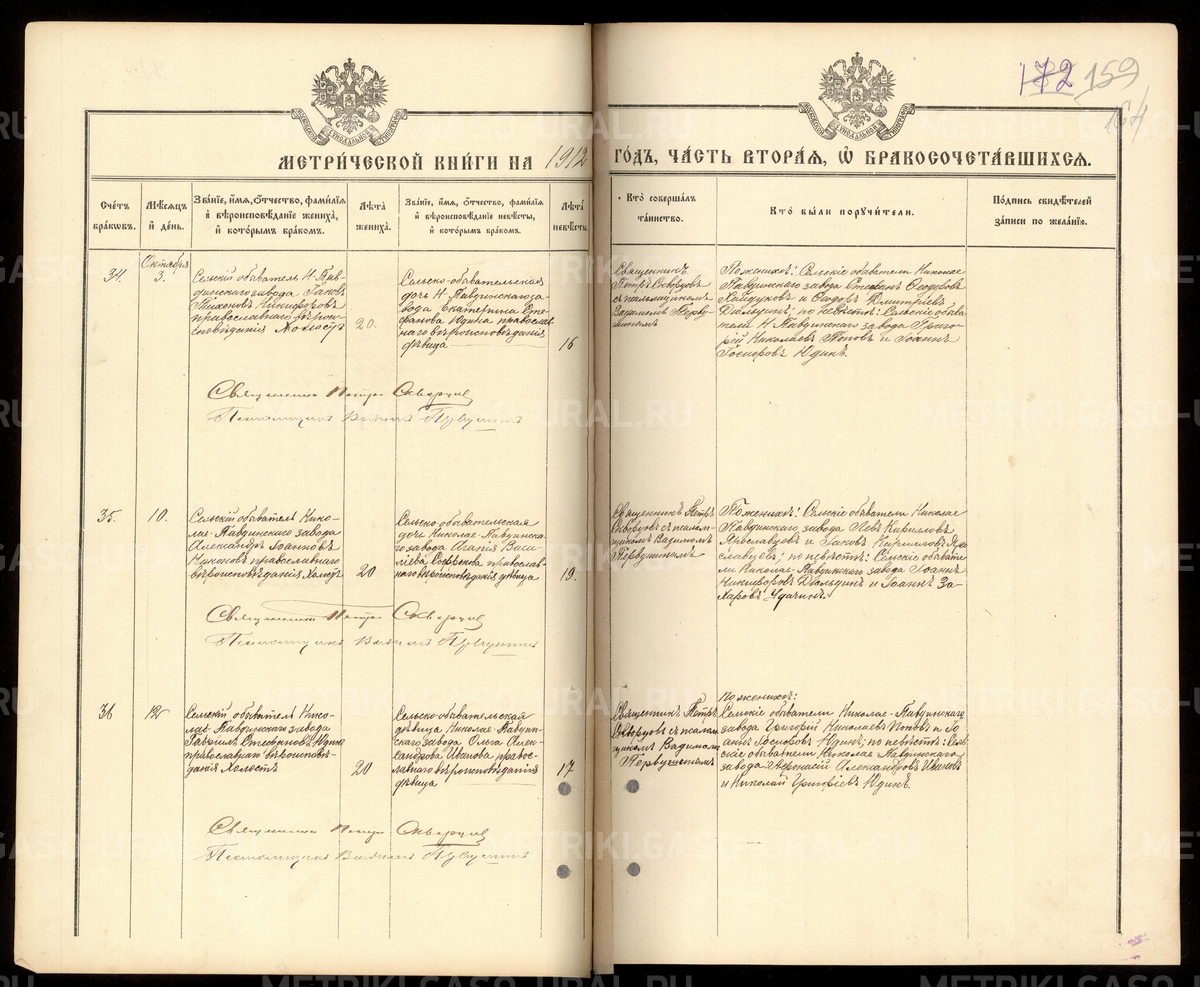 172 159
164
МЕТРИ́ЧЕСКОЙ КНИ́ГИ НА 1912
ГО́ДЪ, ЧА́СТЬ ВТОРА́Я, Ѡ БРАКОСОЧЕТА́ВШИХСЯ.
Сче́тъ бра́ковъ.
Мѣ́сяцъ и́ де́нь.
Зва́ніе, и́мя, о́тчество, фами́лія и́ вѣроисповѣ́даніе жениха̀, и́ кото́рымъ бра́комъ.
Лѣ́та жениха̀.
Зва́ніе, и́мя, о́тчество, фами́лія и́ вѣроисповѣ́даніе невѣ́сты, и́ кото́рымъ бра́комъ.
Лѣ́та невѣ́сты.
Кто̀ соверша́лъ та́инство.
Кто̀ бы́ли поручи́тели.
По́дпись свидѣ́телей за́писи по жела́нію.
34.
Октября
3.
Сельскій обыватель Н-Пав-
динскаго завода Іаковъ
Тихоновъ Никифоровъ
православнаго вѣроис-
повѣданія Холостъ
20.
Сельско-обывательская
дочь Н-Павдинскаго за-
вода Екатерина Сте-
фанова Юдина православ-
наго вѣроисповѣданія
дѣвица
16
Священникъ
Петръ Скворцовъ
съ псаломщикомъ
Вадимомъ Перву-
шинымъ
По женихѣ: Сельскіе обыватели Николае
Павдинскаго завода Стефанъ Ѳеодоровъ
Хайдуковъ и Ѳеодоръ Димитріевъ
Дюльдинъ; по невѣстѣ: Сельскіе обыва-
тели Н Павдинскаго завода Григо-
рій Николаевъ Поповъ и Іоаннъ
Госифоровъ Юдинъ.
Священникъ Петръ Скворцовъ
Псаломщикъ Вадимъ Первушинъ
35.
10.
Сельскій обыватель Нико-
лае-Павдинскаго завода
Александръ Іоанновъ
Никоновъ православнаго
вѣроисповѣданія Холостъ
20
Сельско-обывательская
дочь Николае-Павдинска-
го завода Агапія Васи-
льева православ-
наго вѣроисповѣданія дѣвица
19.
Священникъ Петръ
Скворцовъ съ псалом-
щикомъ Вадимомъ
Первушинымъ
По женихѣ: Сельскіе обыватели Николае
Павдинскаго завода Левъ Кирилловъ
Ярославцевъ и Іаковъ Кирилловъ Яро-
славцевъ; по невѣстѣ: Сельскіе обывате-
ли Николае-Павдинскаго завода Іоаннъ
Никифоровъ Дюльдинъ и Іоаннъ За-
харовъ Удачинъ.
Священникъ Петръ Скворцовъ
Псаломщикъ Вадимъ Первушинъ
36
Сельскій обыватель Нико-
лае-Павдинскаго завода
Гавріилъ Стефановъ Юдинъ
православнаго вѣроисповѣ-
данія Холостъ
20
Сельско-обывательская
дѣвица Николае-Павдин-
скаго завода Ольга Алек-
сандрова Иванова право-
славнаго вѣроисповѣданія
дѣвица
17
Священникъ Петръ
Скворцовъ съ псалом-
щикомъ Вадимомъ
Первушинымъ
По женихѣ:
Сельскіе обыватели Николае-Павдинскаго
завода Григорій Николаевъ Поповъ и Іо-
аннъ Госифоровъ Юдинъ; по невѣстѣ: Сель-
скіе обыватели Николае Павдинскаго
завода Александровъ Ивановъ
и Николай Григоріевъ Юдинъ.
Священникъ Петръ Скворцовъ
Псаломщикъ Вадимъ Первушинъ
METRIKI.GASO-URAL.RU